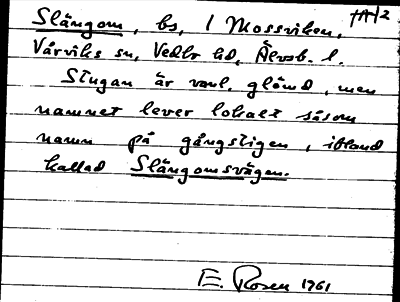 Slängom, bs, l Mossviken,
Vårviks sn, Vedbo hd, Älvsb. l.
Stugan är vanl. glömd, men
namnet lever lokalt såsom
namn på gångstigen, ibland
kallad Slängomsvägen.
E. Rosen 1961